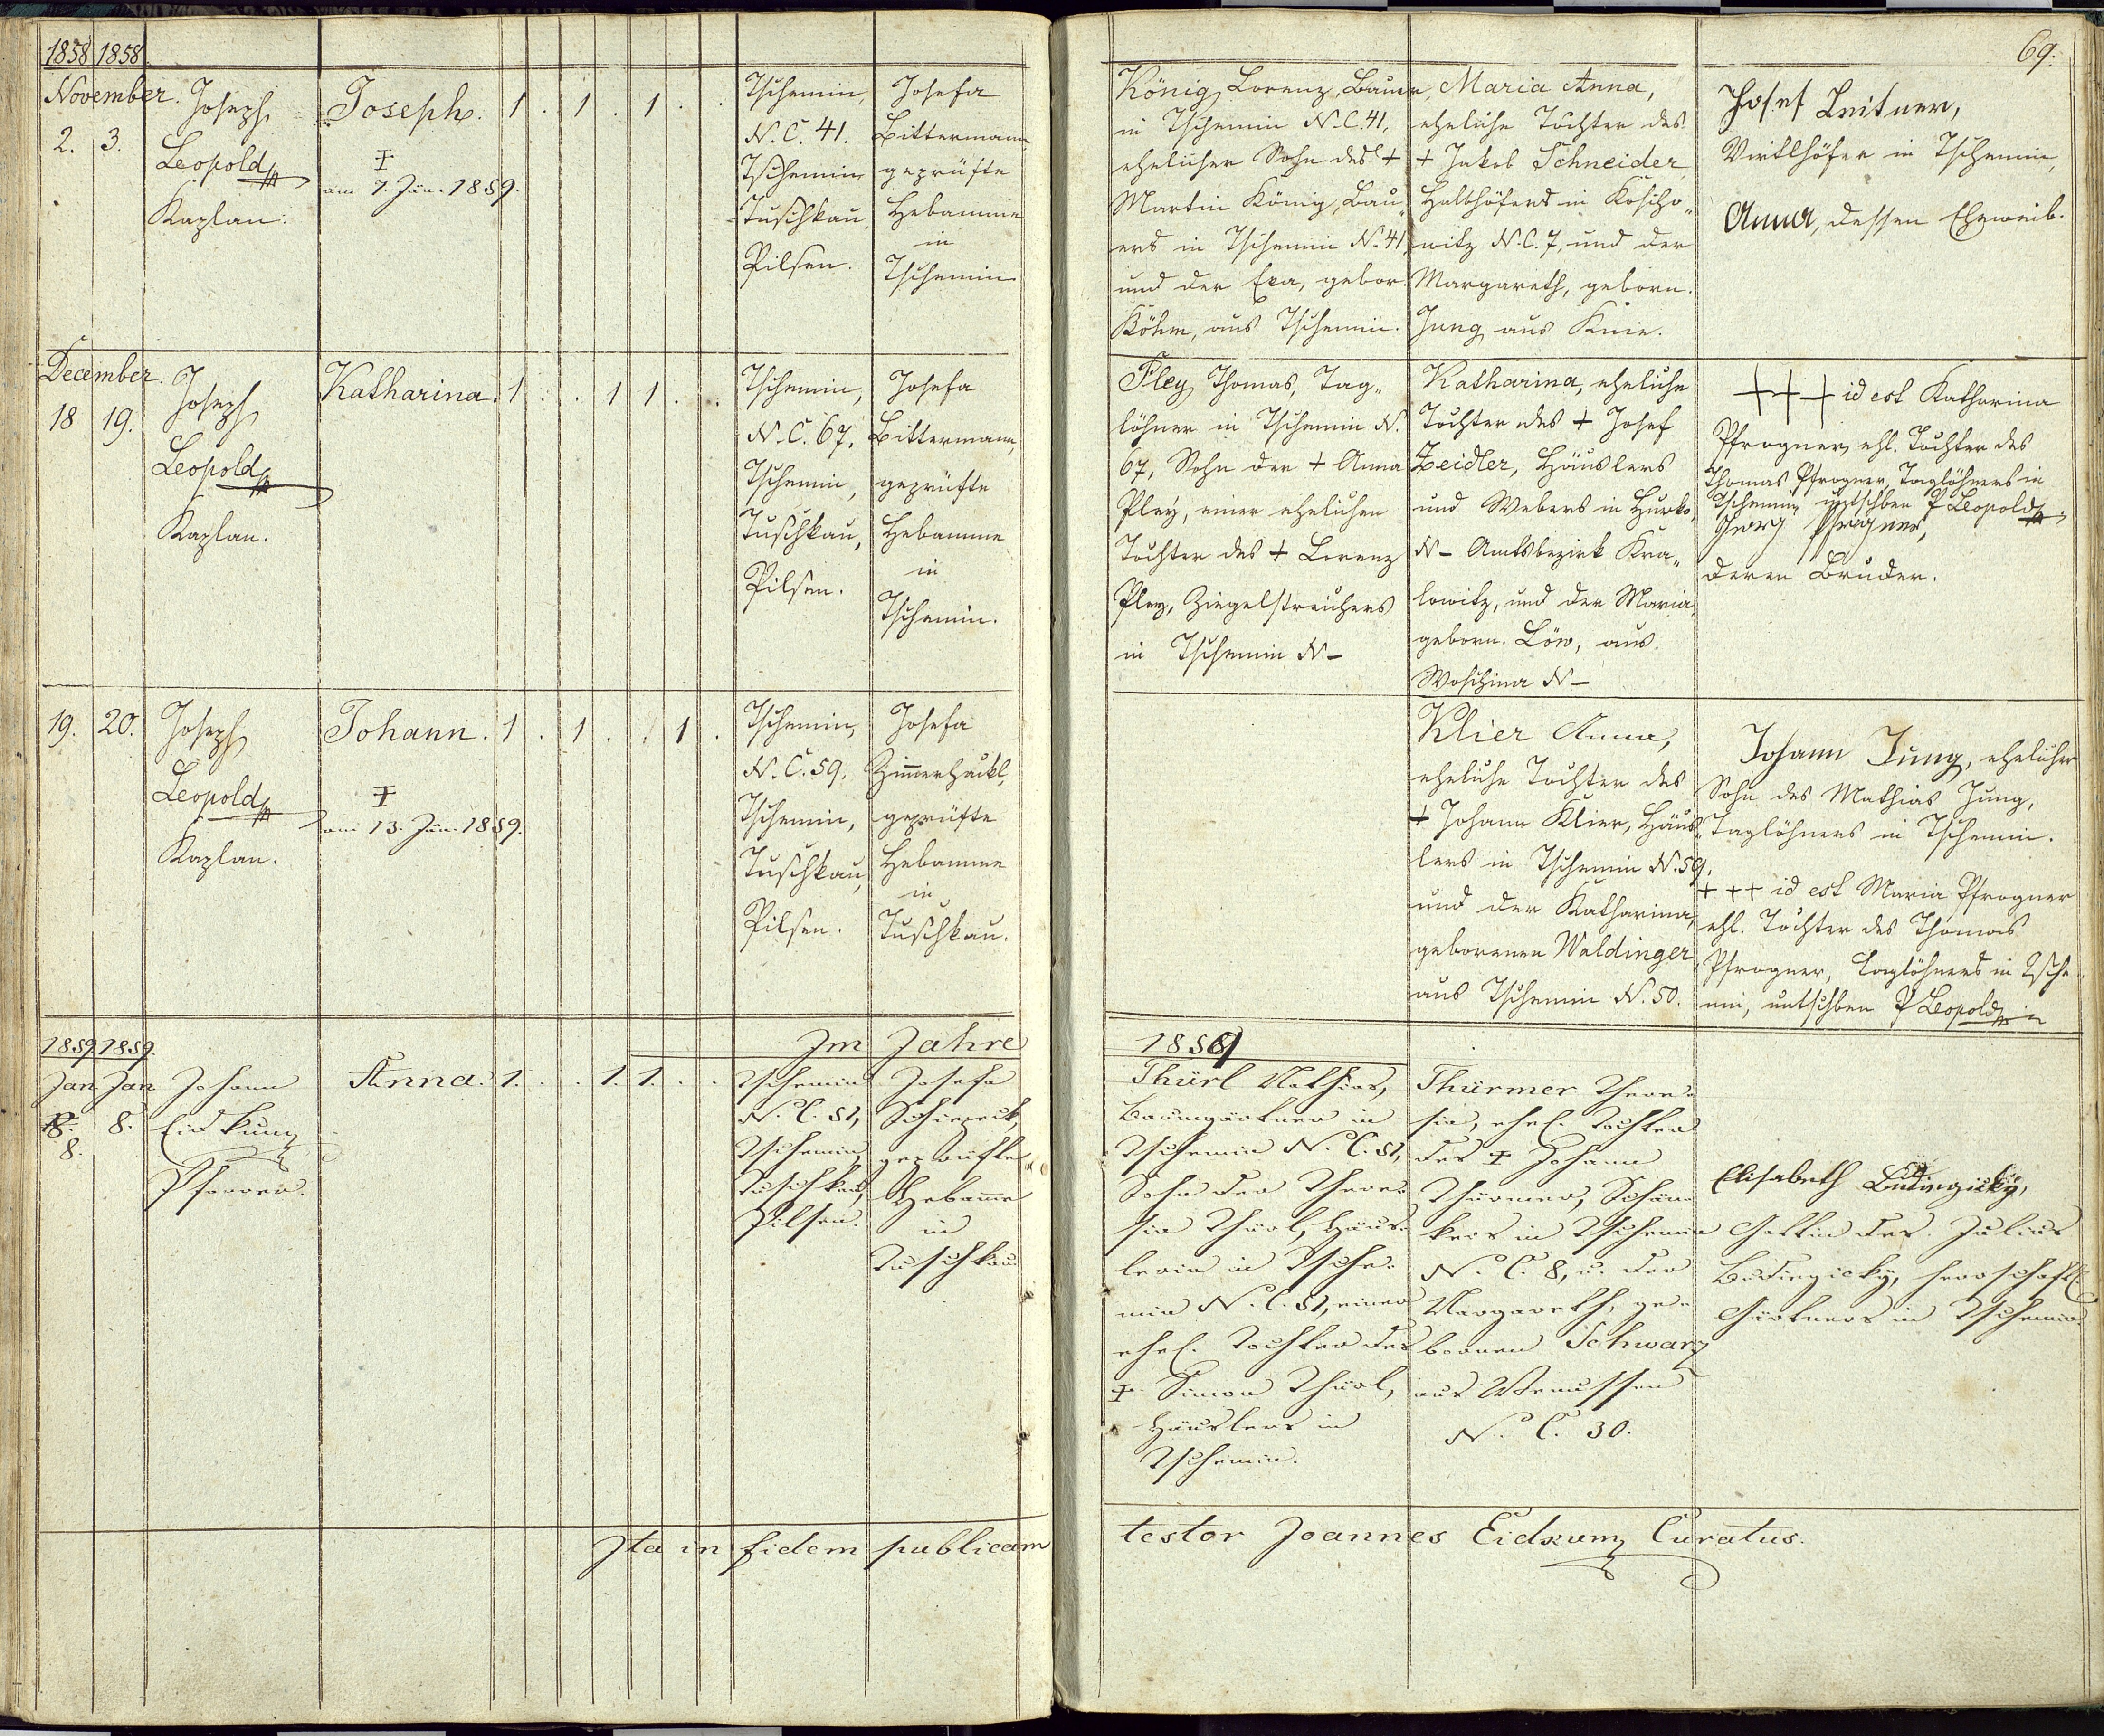 1858 1858.
69.
November.
2. 3.
Joseph
Leopold
Kaplan.
Joseph.
‡
am 7. Jän. 1859.
1 . 1 . 1 . .
Tschemin,
N. C. 41.
Tschemin
Tuschkau
Pilsen.
Josefa
Bittermann,
geprüfte
Hebamme
in
Tschemin
König Lorenz, Bauer,
in Tschemin N.C. 41,
ehelicher Sohn des +
Martin König, Bau„
ers in Tschemin N. 41,
und der Eva, gebor.
Böhm, aus Tschemin.
Maria Anna,
eheliche Tochter des
+ Jakob Schneider,
Halbhöfers in Koscho„
witz N.C. 7, und der
Margareth, geborn.
Jung aus Knie.
Josef Leitner,
Virtlhöfer in Tschemin,
Anna, dessen Eheweib.
December.
18 19.
Joseph
Leopold
Kaplan.
Katharina.
1 . . 1 1 . .
Tschemin,
N. C. 67.
Tschemin,
Tuschkau,
Pilsen.
Josefa
Bittermann,
geprüfte
Hebamme
in
Tschemin.
Pley Thomas, Tag„
löhner in Tschemin N.
67, Sohn der + Anna
Pley, einer ehelichen
Tochter des + Lorenz
Pley, Ziegelstreichers
in Tschemin N –
Katharina, eheliche
Tochter des + Josef
Zeidler, Häuslers
und Webers in Hurk
N – Amtsbezirk Kra„
lowitz, und der Maria
geborn. Löw, aus
Woschina N –
+++ id est Katharina
Pfrogner, ehl. Tochter des
Thomas Pfrogner, Taglöhners in
Tschemin P Leopold
Georg Pfrogner,
deren Bruder.
19. 20.
Joseph
Leopold
Kaplan.
Johann.
‡
am 13. Jän. 1859.
1 . 1 . . 1 .
Tschemin,
N. C. 59.
Tschemin,
Tuschkau,
Pilsen.
Josefa
Zimmerhackl,
geprüfte
Hebamme
in
Tuschkau.
Klier Anna,
eheliche Tochter des
+ Johann Klier, Häus„
lers in Tschemin N. 59,
und der Katharina,
geborenen Waldinger
aus Tschemin N. 50.
Johann Jung, ehelicher
Sohn des Mathias Jung,
Taglöhners in Tschemin.
+++ id est Maria Pfrogner
ehl. Tochter des Thomas
Pfrogner, Taglöhners in Tsche
min, P Leopold
1859 1859.
Im Jahre
1859
Jan Jan
8. 8.
8.
Johann
Eidkum
Pfarrer.
Anna.
1. . . 1. 1. . .
Tschemin
N. C. 51,
Tschemin,
Tuschkau,
Pilsen.
Josefa
geprüfte
Hebamme
in
Tuschkau
Thürl Mathias,
Baumgärtner in
Tschemin N. C. 51,
Sohn der There-
sia Thürl, Häus-
lerin in Tsche-
min N. C. 51, einer
ehel. Tochter des
‡ Simon Thürl,
Häuslers in
Tschemin.
Thürmer There-
sia, ehel. Tochter
des ‡ Johann
Thürmer, Schän-
kers in Tschemin
N. C. 8, u. der
Margareth, ge-
bornen Schwarz
aus Wenussen
N. C. 30.
Elisabeth Budinzicky,
Gattin des Julius
Budinzicky, herrschaftl.
Gärtners in Tschemin
Ita in fidem publicam testor Joannes Eidkum Curatus.